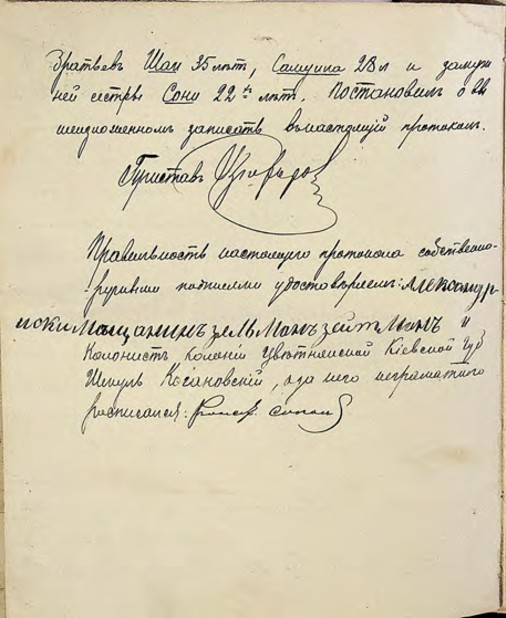 братьевъ Шаи 35 лѣтъ, Самуила 28 л и замуж
ней сестры Сони 22 лѣтъ. Постановилъ о вы
шеизложенномъ записать въ настоящій протоколъ.
Приставъ
Правильность настоящаго протокола собственно-
ручными подписями удостовѣряемъ: Александр-
искимащанинъ зельманъ зейтманъ и
Колонистъ колоніи Цвѣтнянской Кіевской губ
Шмуль Косановскій, а за него неграмотнаго
росписался: